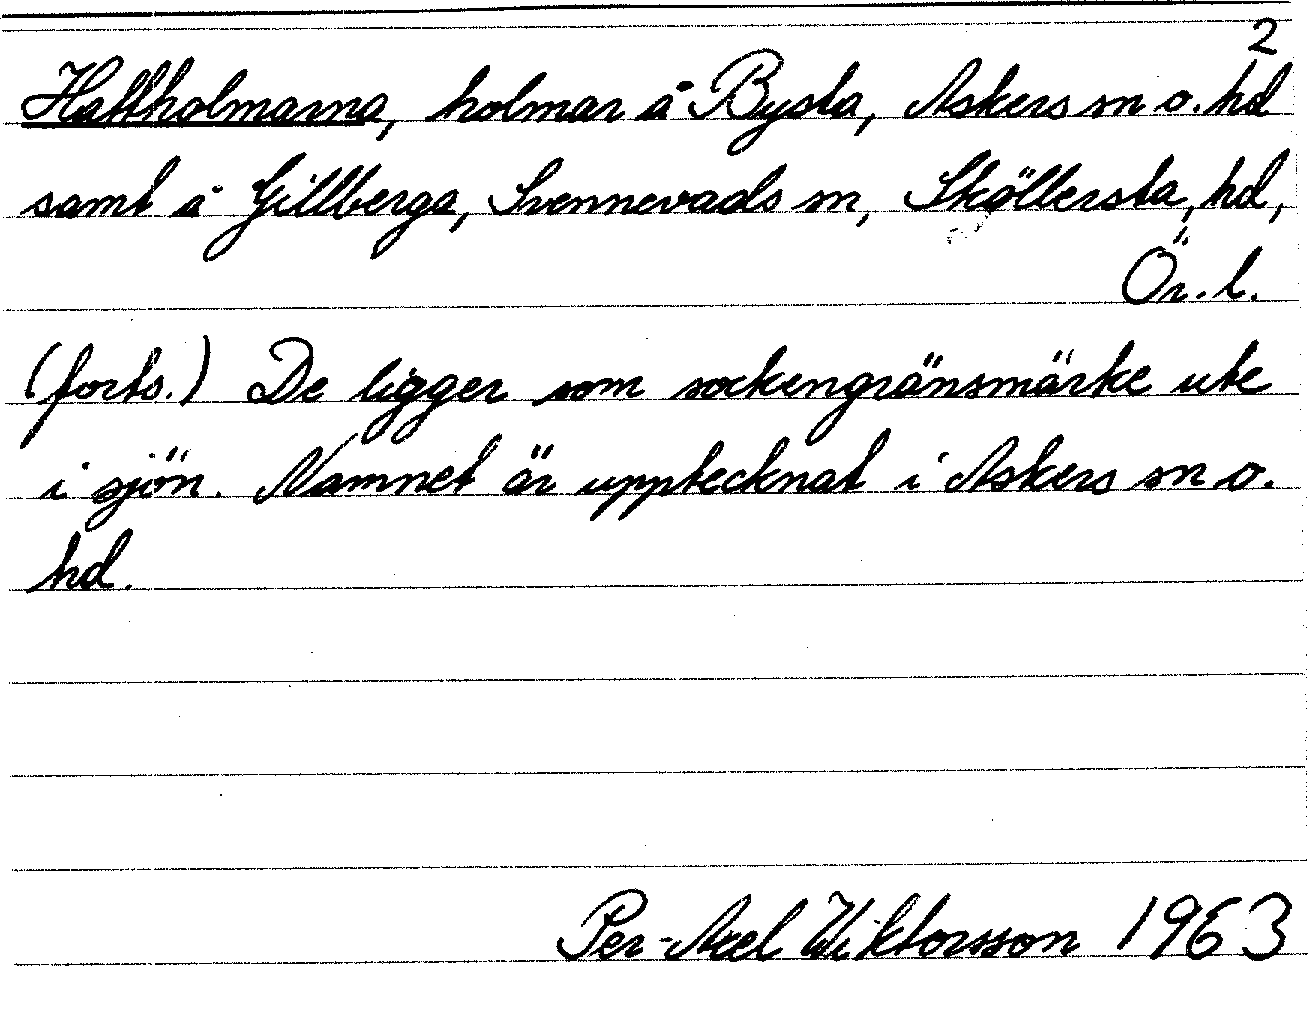 2
Hallholmarna, holmar å Bysta, Askers sn o. hd
samt å Gillberga, Svennevads sn, Sköllersta, hd,
Ör. l.
(forts.) De ligger som sockengränsmärke ute
i sjön. Namnet är upptecknat i Askers sn o.
hd.
Per-Axel Wiktorsson 1963